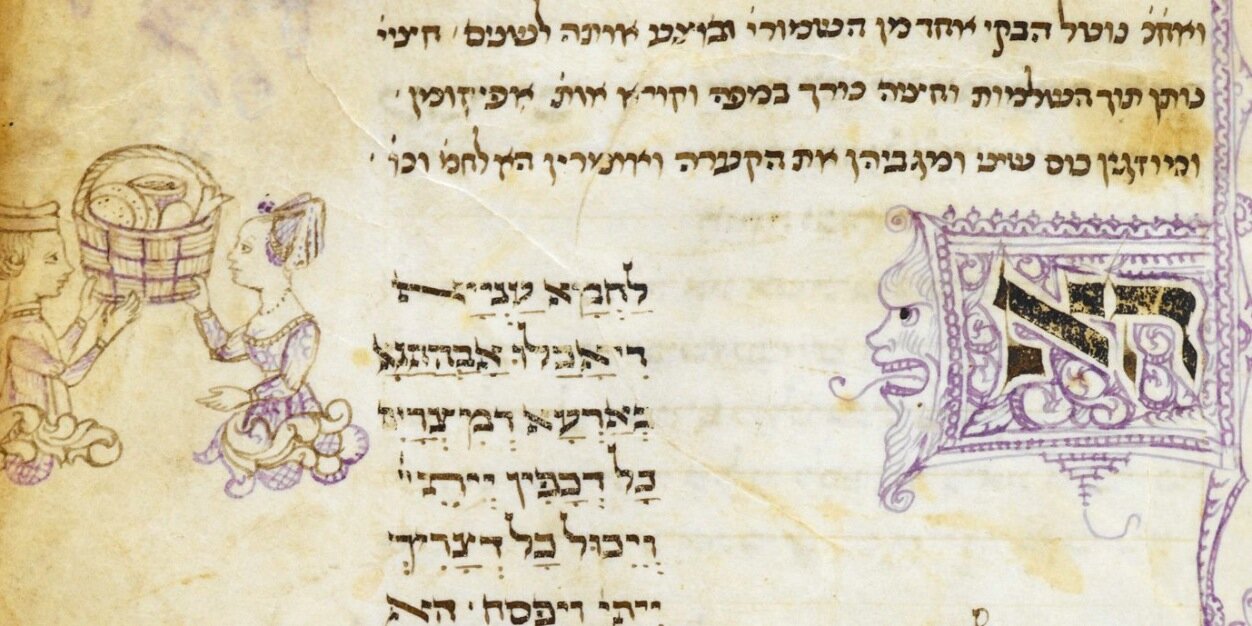 ואח'כ נוטל הבקי אחד מן השמורי' ובוצע אותה לשנים' חציי'
נותן תוך השלמות וחציה כורך במפה וקורא אות' אפיקומן'
ומוזגין כוס שיני ומגביהין את הקערה ואומרין הא לחמ' וכו'
הא
לַחְמָא עַנְיָיא
דִי אֲכַלוּ אֲבָהָתָנָא
בְּאַרְעָא דְמִצְרָיִם
כָּל דְכָפִין יֵיתֵי
וְיֵכוּל כָּל דְצָרִיךְ
ייתי ויפסח' הא